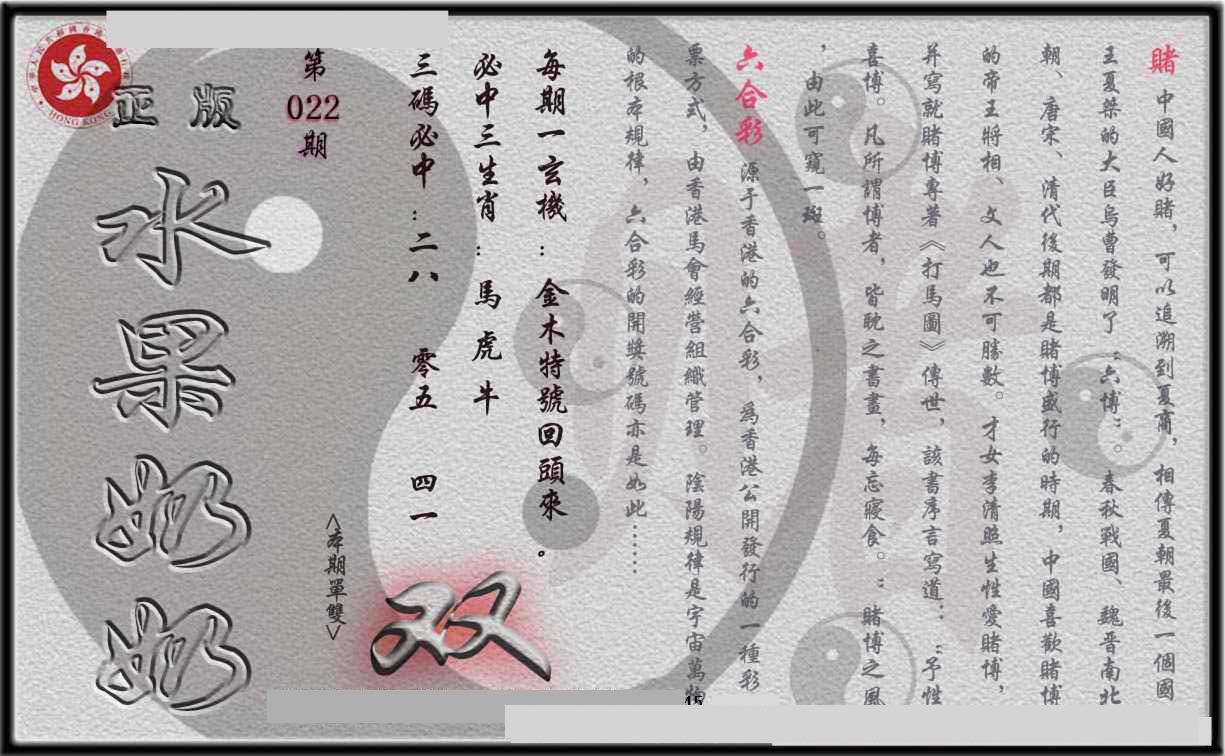 賭 中國人好賭，可以追溯到夏商，相傳夏朝最後一個國
王夏桀的大臣烏曹發明了“六博”。春秋戰國、魏晋南北
朝、唐宋、清代後期都是賭博盛行的時期，中國喜歡賭博
的帝王將相、文人也不可勝數。才女李清照生性愛賭博，
并寫就賭博專著《打馬圖》傳世，該書序言寫道：“予性
喜博。凡所謂博者，皆耽之書畫，每忘寢食。”賭博之風
，由此可窺一斑。
六合彩 源于香港的六合彩，爲香港公開發行的一種彩
票方式，由香港馬會經營組織管理。陰陽規律是宇宙萬物
的根本規律，六合彩的開獎號碼亦是如此……
每期一玄機：金木特號回頭來。
必中三生肖：馬虎牛
三碼必中：二八 零五 四一
<本期單雙>
双
第
022
期
正版
水果奶奶
HONG KONG